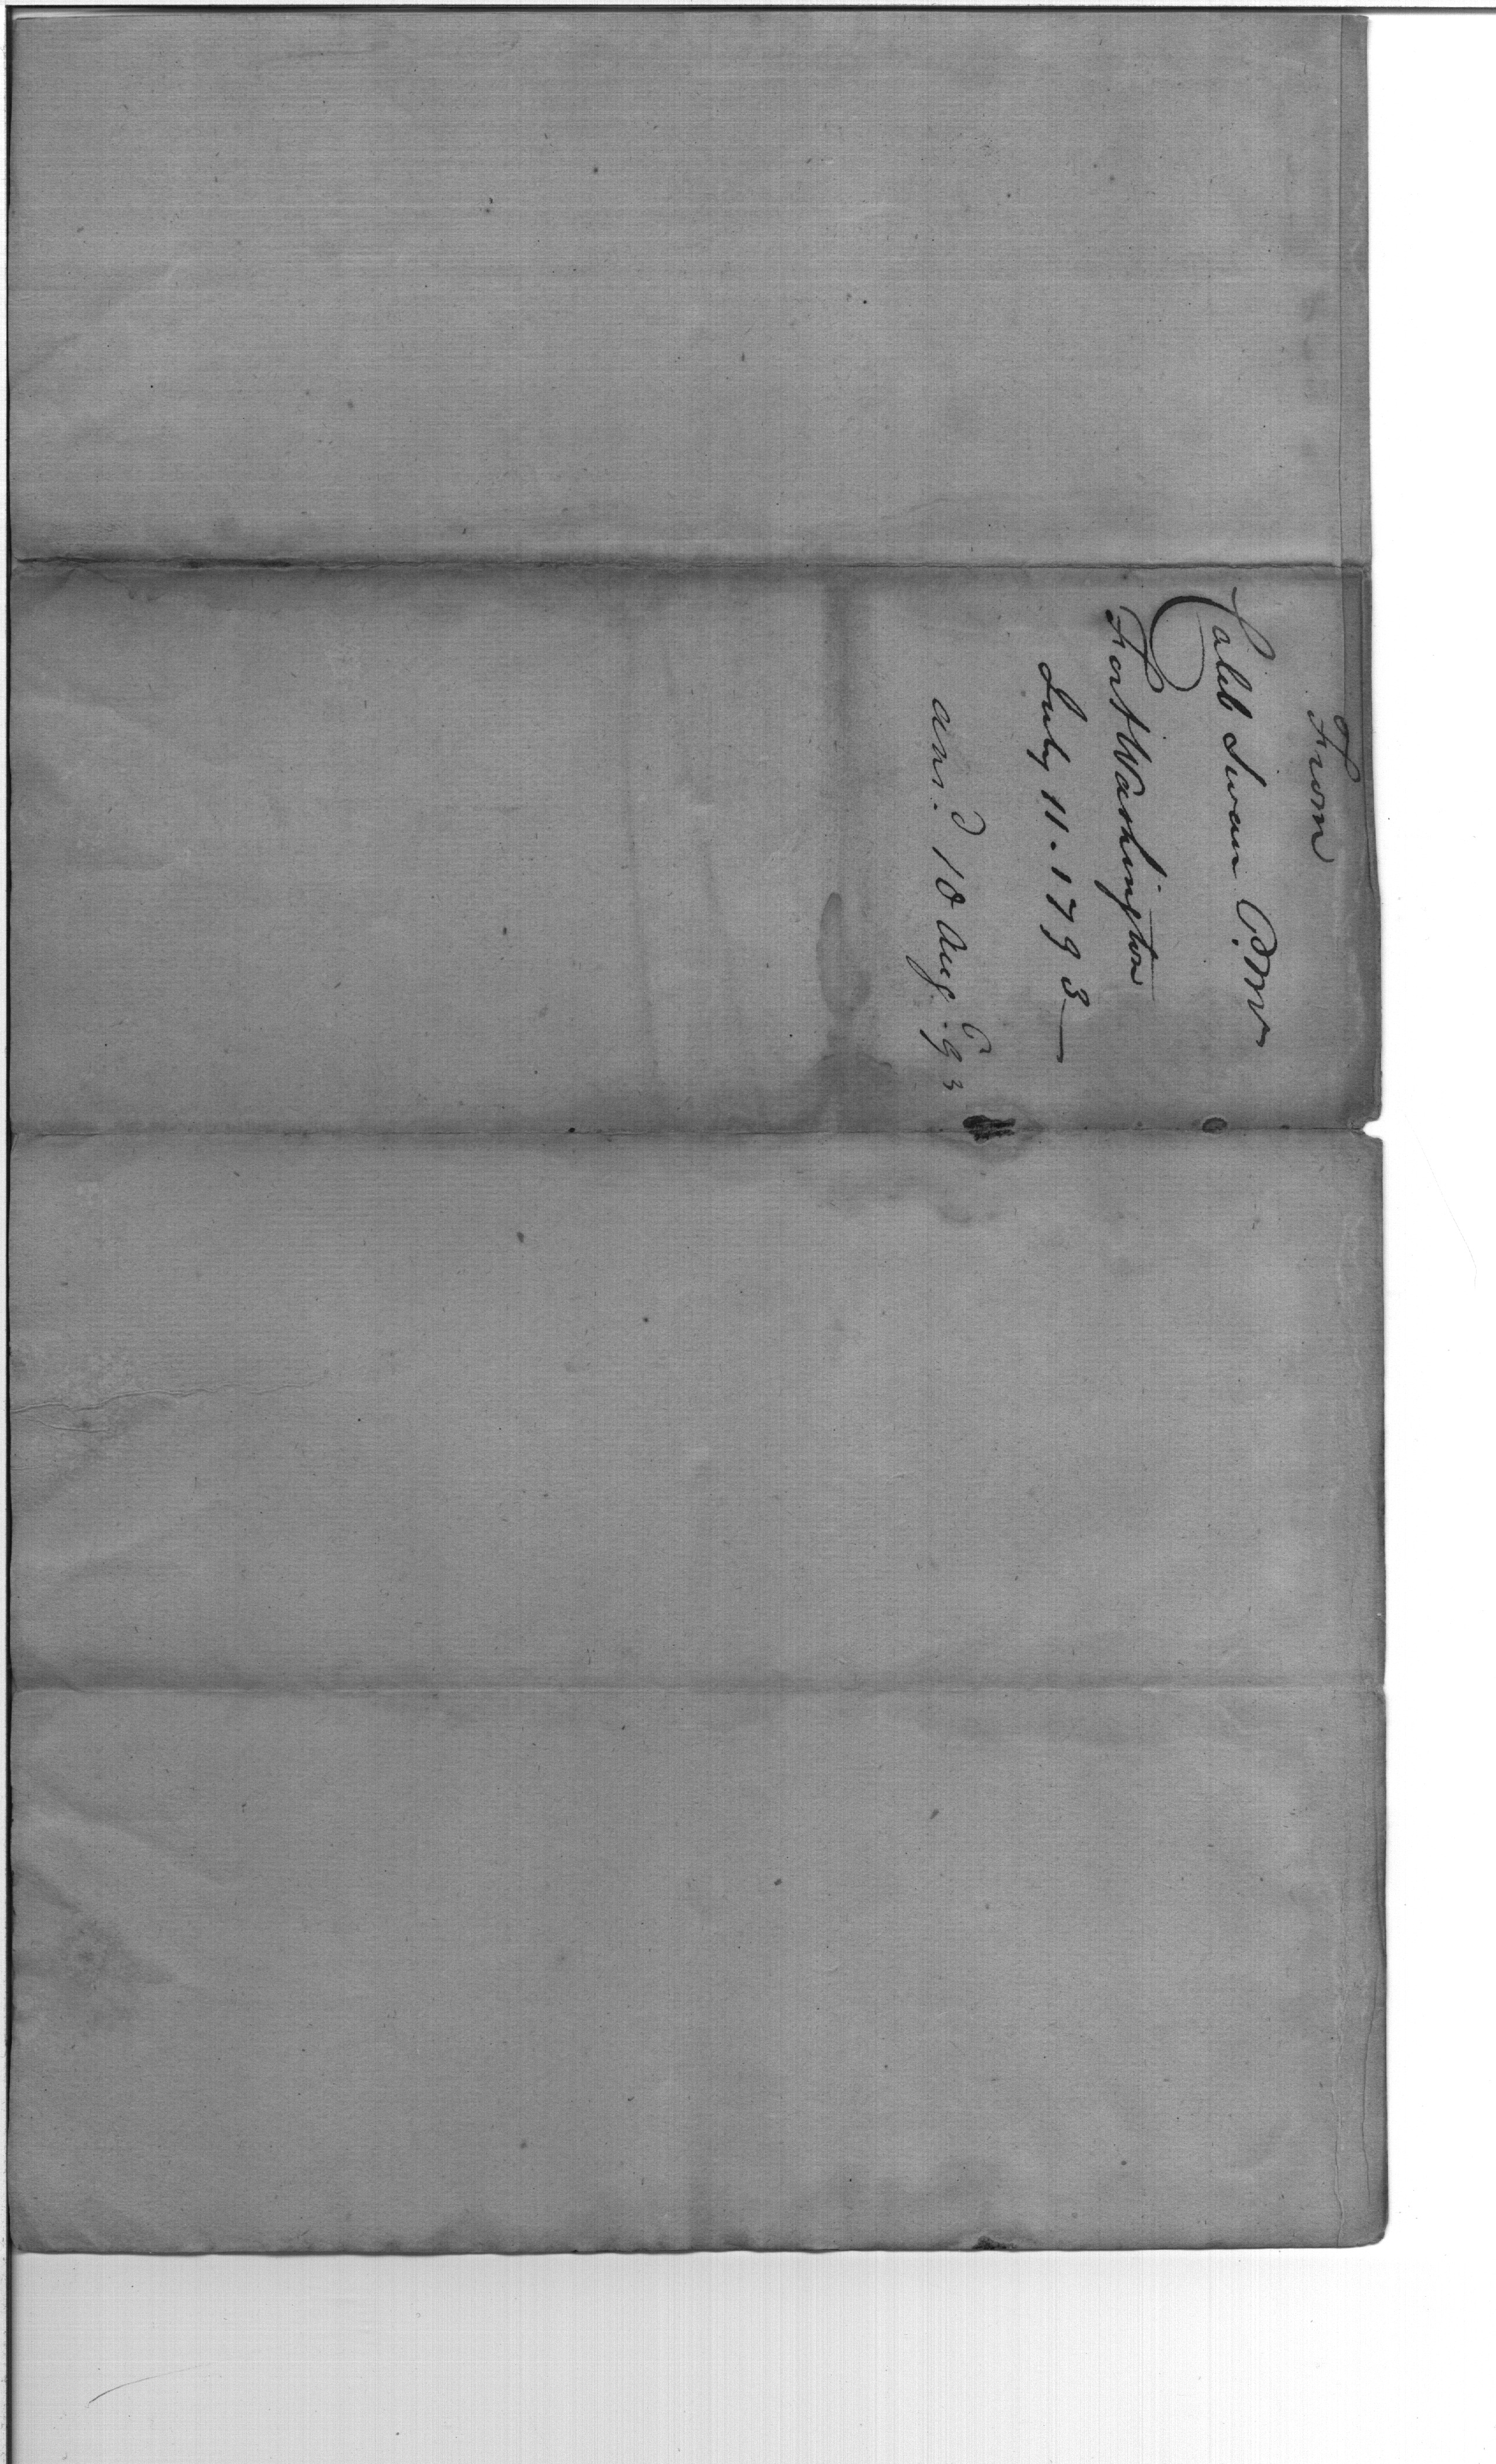 From
Caleb Swan P.M
Fort Washington
July 11. 1793—
ans.d 10 Aug. 93